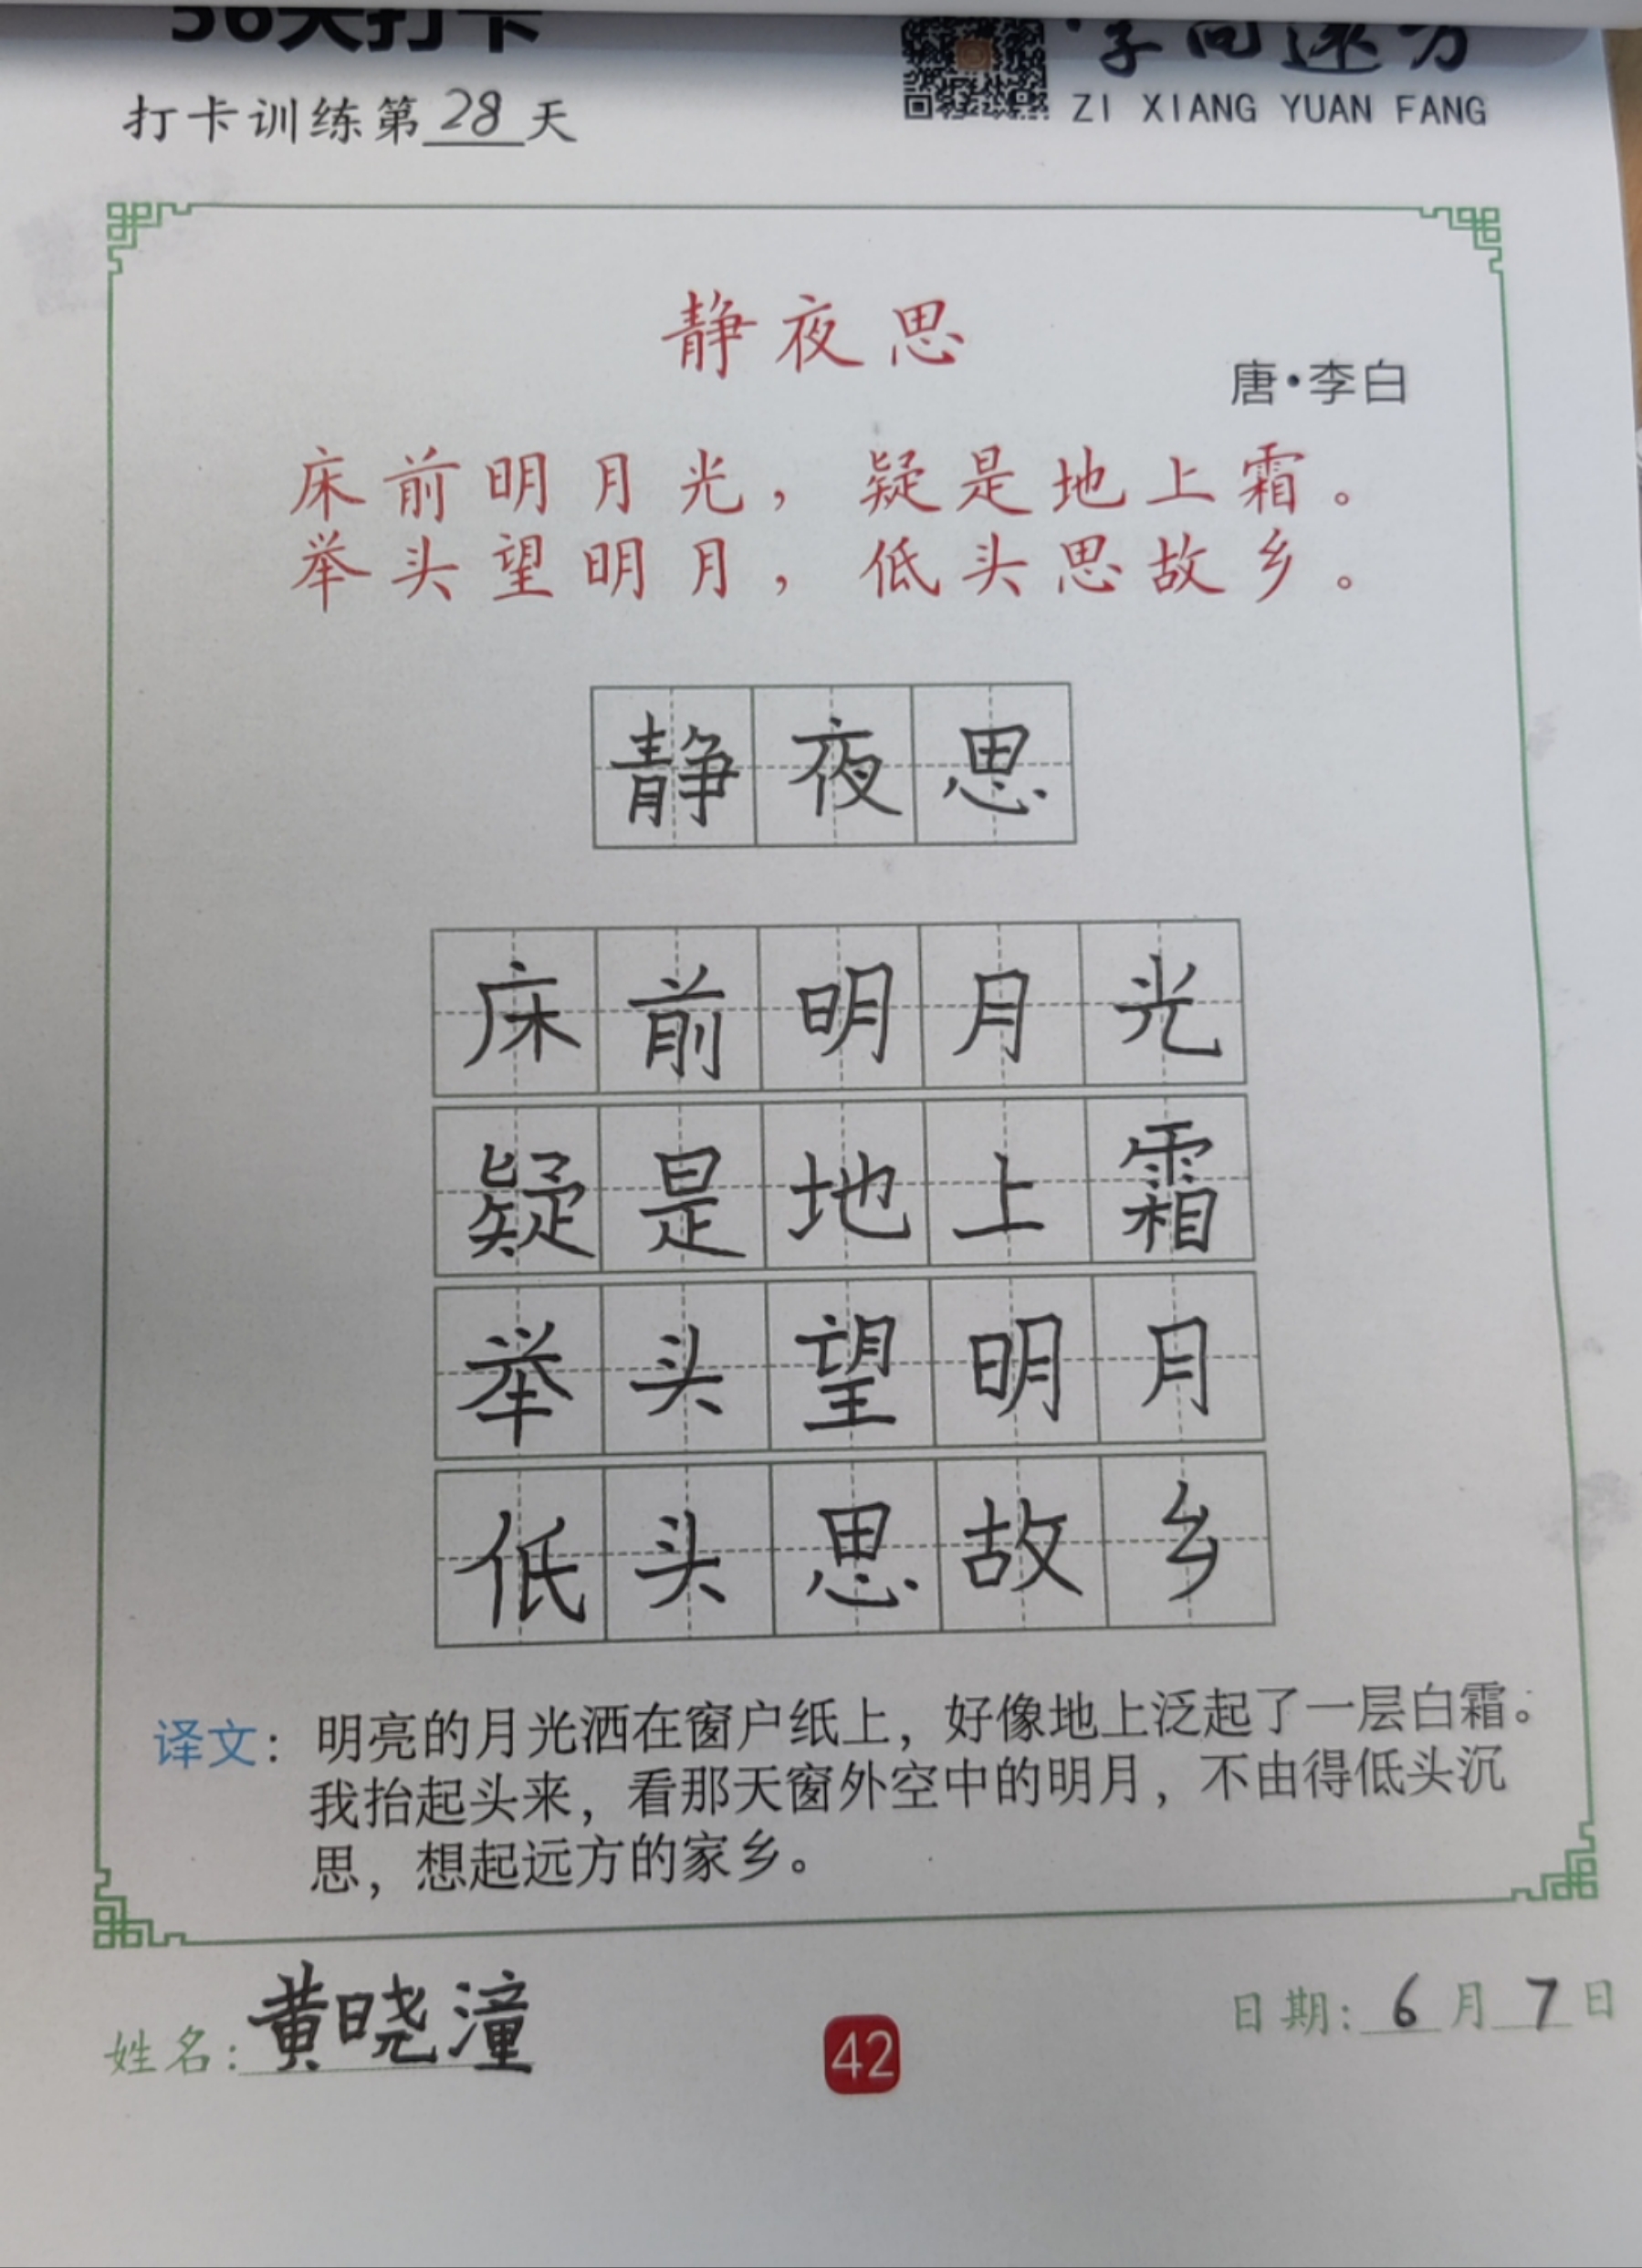 56天打卡
字向远方
ZI XIANG YUAN FANG
打卡训练第28天
静夜思
唐·李白
床前明月光，疑是地上霜。
举头望明月，低头思故乡。
静夜思
床前明月光
疑是地上霜
举头望明月
低头思故乡
译文：明亮的月光洒在窗户纸上，好像地上泛起了一层白霜。
我抬起头来，看那天窗外空中的明月，不由得低头沉
思，想起远方的家乡。
姓名：黄晓潼
42
日期：6月7日